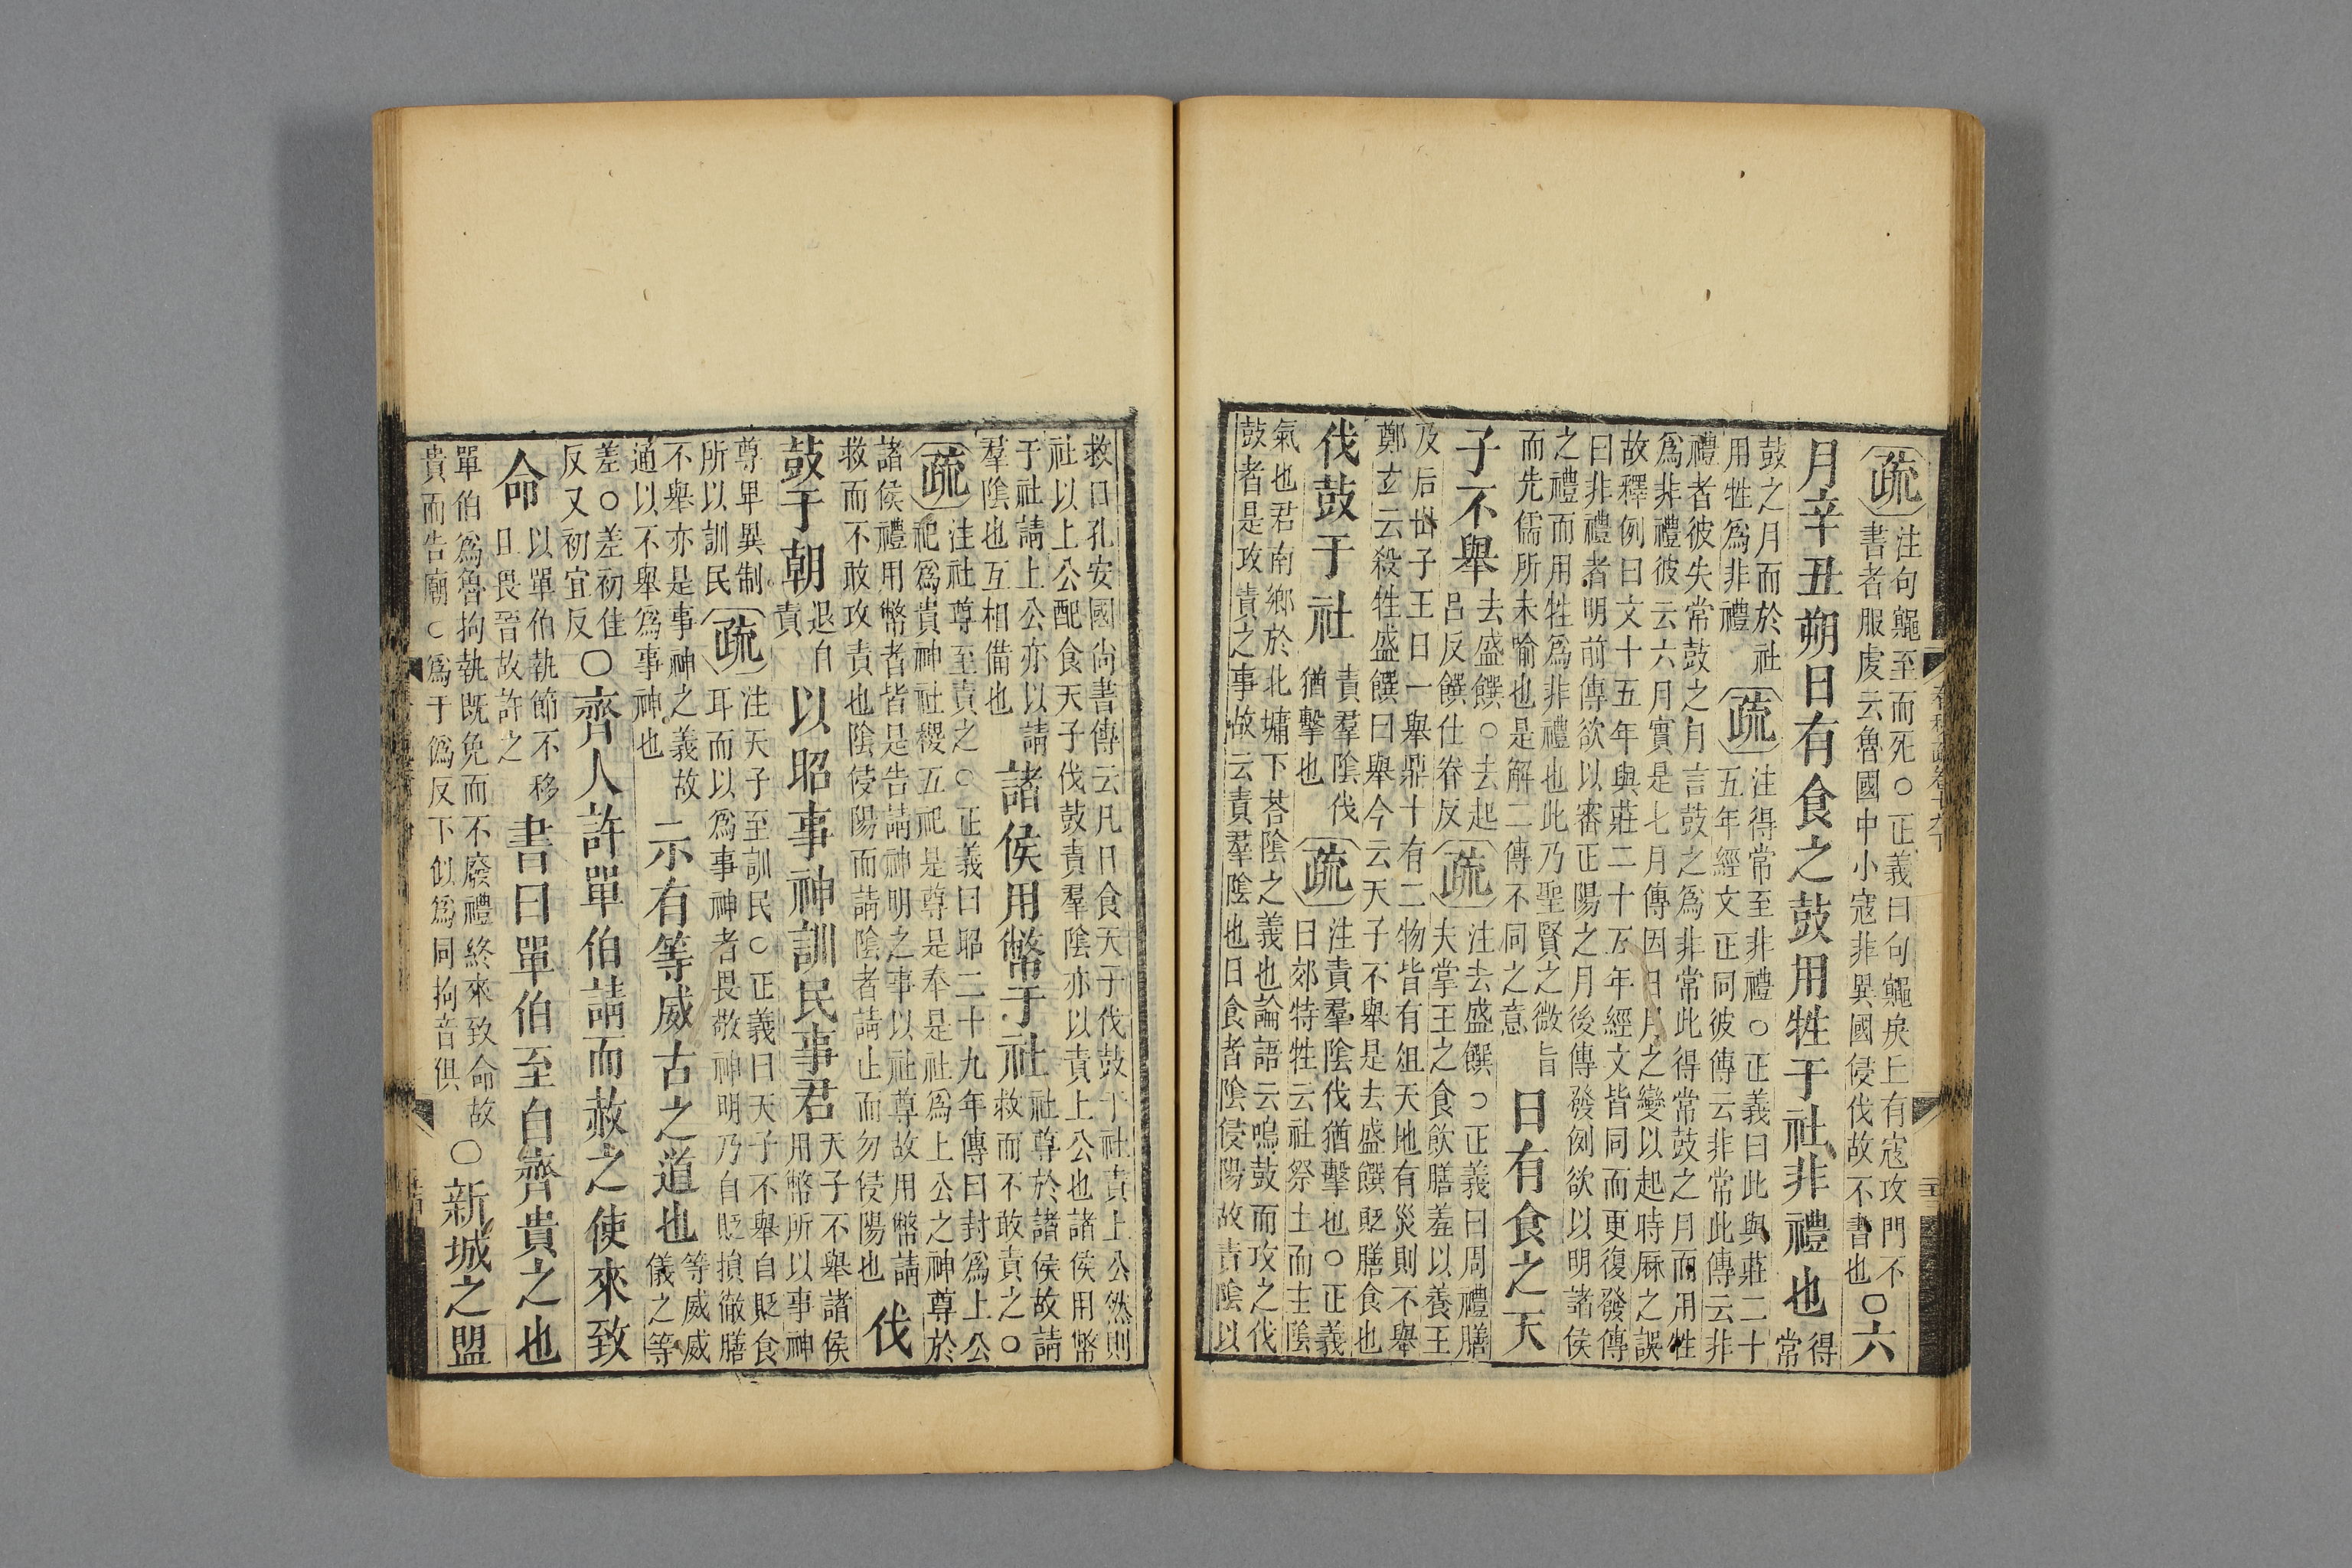 疏
注句鼆至而死○正義曰句鼆戾上有寇攻門不
書者服虔云魯國中小寇非異國侵伐故不書也
○六
月辛丑朔日有食之鼓用牲于社非禮也
得
常
鼓之月而於社
用牲爲非禮
疏
注得常至非禮○正義曰此與莊二十
五年經文正同彼傳云非常此傳云非
禮者彼失常鼓之月言鼓之爲非常此得常鼓之月而用牲
爲非禮彼云六月實是七月傳因日月之變以起時厤之誤
故釋例曰文十五年與莊二十五年經文皆同而更復發傳
曰非禮者明前傳欲以審正陽之月後傳發例欲以明諸侯
之禮而用牲爲非禮也此乃聖賢之微旨
而先儒所未喻也是解二傳不同之意
日有食之天
子不舉
去盛饌○去起
呂反饌仕眷反
疏
注去盛饌○正義曰周禮膳
夫掌王之食飲膳羞以養王
及后世子王日一舉鼎十有二物皆有俎天地有災則不舉
鄭玄云殺牲盛饌曰舉今云天子不舉是去盛饌貶膳食也
伐鼓于社
責羣陰伐
猶擊也
疏
注責羣陰伐猶擊也○正義
曰郊特牲云社祭土而主陰
氣也君南鄉於北墉下荅陰之義也論語云鳴鼓而攻之伐
鼓者是攻責之事故云責羣陰也日食者陰侵陽故責陰以
救日孔安國尚書傳云凡日食天子伐鼓于社責上公然則
社以上公配食天子伐鼓責羣陰亦以責上公也諸侯用幣
于社請上公亦以請
羣陰也互相備也
諸侯用幣于社
社尊於諸侯故請
救而不敢責之○
疏
注社尊至責之○正義曰昭二十九年傳曰封爲上公
祀爲貴神社稷五祀是尊是奉是社爲上公之神尊於
諸侯禮用幣者皆是告請神明之事以社尊故用幣請
救而不敢攻責也陰侵陽而請陰者請止而勿侵陽也
伐
鼓于朝
退自
責
以昭事神訓民事君
天子不舉諸侯
用幣所以事神
尊卑異制
所以訓民
疏
注天子至訓民○正義曰天子不舉自貶食
耳而以爲事神者畏敬神明乃自貶損徹膳
不舉亦是事神之義故
通以不舉爲事神也
示有等威古之道也
等威威
儀之等
差○差初佳
反又初宜反
○齊人許單伯請而赦之使來致
命
以單伯執節不移
且畏晉故許之
書曰單伯至自齊貴之也
單伯爲魯拘執既免而不廢禮終來致命故
貴而告廟○爲于僞反下似爲同拘音俱
○新城之盟